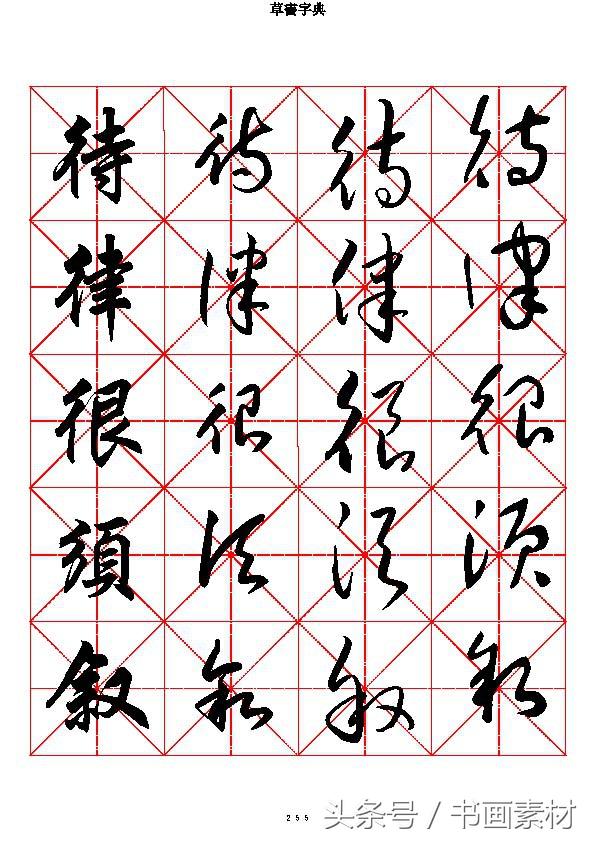 草書字典
待 待 待 待
律 律 律 律
很 很 很 很
須 須 須 須
叙 叙 叙 叙
255
头条号 / 书画素材